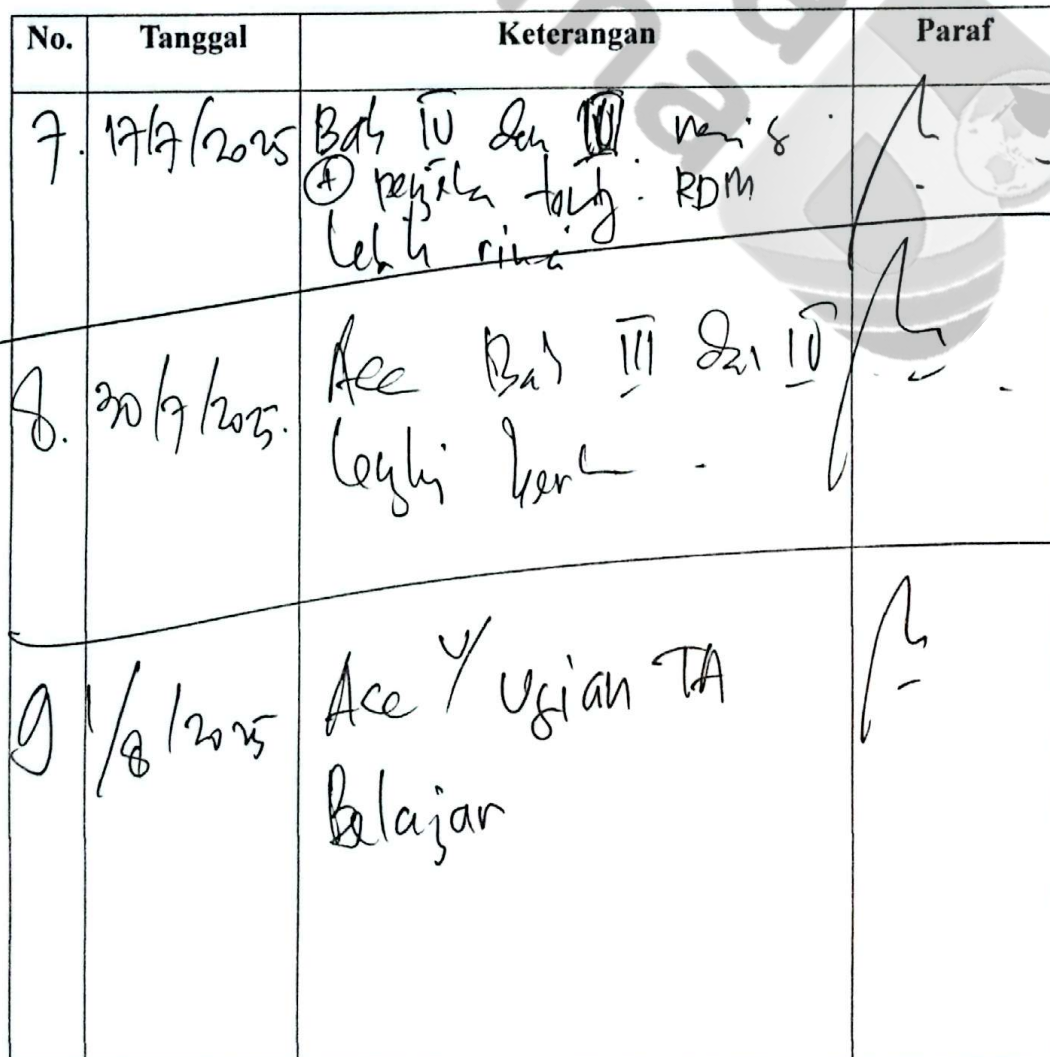 No. Tanggal Keterangan Paraf
7. 17/7/2025 Bab IV dan III revisi
(+) penjela tentg. RDM
lebih rinci
8. 30/7/2025. Acc Bab III dan IV
9 1/8/2025 Acc u/ Ujian TA
Belajar